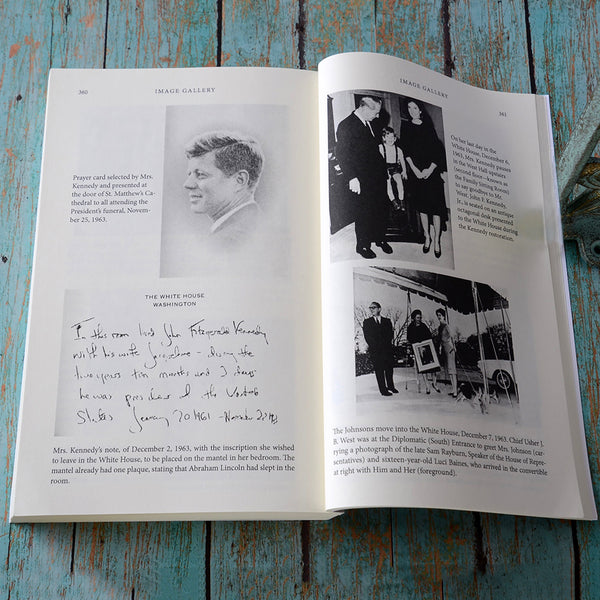 360
IMAGE GALLERY
Prayer card selected by Mrs.
Kennedy and presented at
the door of St. Matthew's Ca-
thedral to all attending the
President's funeral, Novem-
ber 25, 1963.
THE WHITE HOUSE
WASHINGTON
In this room lived John Fitzgerald Kennedy
with his wife Jacqueline - during the
two years ten months and 2 days
he was president of the United
States January 20 1961 - November 22 1963
Mrs. Kennedy's note, of December 2, 1963, with the inscription she wished
to leave in the White House, to be placed on the mantel in her bedroom. The
mantel already had one plaque, stating that Abraham Lincoln had slept in the
room.
IMAGE GALLERY
361
On her last day in the
White House, December 6,
1963, Mrs. Kennedy passes
in the West Hall upstairs
(second floor—known as
the Family Sitting Room)
to say goodbye to Mr.
West. John F. Kennedy,
Jr., is seated on an antique
octagonal desk presented
to the White House during
the Kennedy restoration.
The Johnsons move into the White House, December 7, 1963. Chief Usher J.
B. West was at the Diplomatic (South) Entrance to greet Mrs. Johnson (car-
rying a photograph of the late Sam Rayburn, Speaker of the House of Repre-
sentatives) and sixteen-year-old Luci Baines, who arrived in the convertible
at right with Him and Her (foreground).